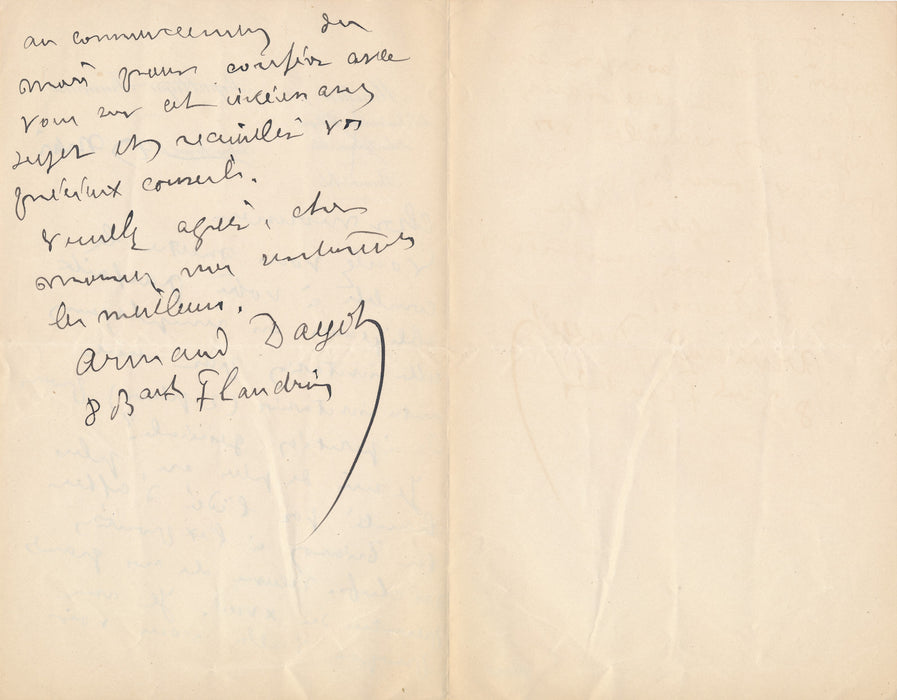 au commencement du
mois pour conférer avec
vous sur cet intéressant
sujet et recueillir vos
précieux conseils.
Veuillez agréer, cher
monsieur mes salutations
les meilleures.
Armand Dayot
8 Bard Flandrin